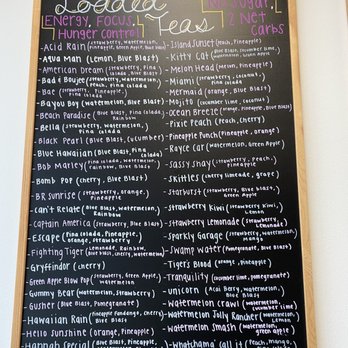 Loaded Teas
ENERGY, FOCUS,
Hunger control
No Sugar,
2 Net
Carbs
-Acid Rain (strawberry, watermelon, pineapple, Green Apple, Blue Blast)
-Aqua Man (Lemon, Blue Blast)
-American Dream (strawberry, Pina Colada, Blue Blast)
-Bad & Boujee (strawberry, Peach, watermelon, Pina Colada)
-Bae (strawberry, Pineapple, Pina Colada)
-Bayou Boy (watermelon, Blue Blast)
-Beach Paradise (Blue Blast, Pina Colada, Rainbow)
-Bella (strawberry, watermelon, Pina Colada)
-Black Pearl (Blue Blast, Cucumber)
-Blue Hawaiian (Blue Blast, Pina Colada)
-Bob Marley (Pina Colada, watermelon, Rainbow, Blue Blast)
-Bomb Pop (cherry, Blue Blast)
-BR Sunrise (strawberry, orange, Pineapple)
-Can't Relate (Blue Blast, watermelon, Rainbow)
-Captain America (strawberry, Blue Blast)
-Escape (Pina Colada, Pineapple, orange, strawberry)
-Fighting Tiger (Lemonade, Rainbow, Blue Blast, watermelon)
-Gryffindor (cherry)
-Green Blow Pop (strawberry, Green Apple, watermelon)
-Gummy Bear (watermelon, strawberry, Pineapple)
-Gusher (Blue Blast, Pomegranate)
-Hawaiian Rain (Blue Blast)
-Hello Sunshine (orange, Pineapple)
-Hannah Special (Blue Blast, Pineapple,
-Island Sunset (Peach, Pineapple)
-Kitty Cat (Blue Blast, cucumber lime, watermelon, Green Apple)
-Melon Head (melon, Pineapple)
-Miami (strawberry, coconut,
-Mermaid (orange, Blue Blast)
-Mojito (cucumber lime, coconut)
-Ocean Breeze (orange, Blue Blast)
-Pixie Peach (Peach, cherry)
-Pineapple Punch (Pineapple, orange)
-Royce Car (watermelon, Green Apple)
-Sassy Shay (strawberry, Peach,
-Skittles (cherry limeade, grape)
-Starburst (strawberry, Blue Blast, Green Apple)
-Strawberry Kiwi (strawberry Kiwi, Lemon)
-Strawberry Lemonade (strawberry, Lemonade)
-Sparkly Garage (strawberry, watermelon, Mango)
-Swamp Water (Pomegranate, Blue Blast)
-Tiger's Blood (orange, Pineapple)
-Tranquility (cucumber lime, pomegranate)
-Unicorn (Acai Berry, watermelon, Blue Blast)
-Watermelon Crawl (watermelon, cucumber lime)
-Watermelon Jolly Rancher (watermelon, Lemon)
-Watermelon Smash (watermelon, green apple)
-Whatchama' call it (Peach, mango,